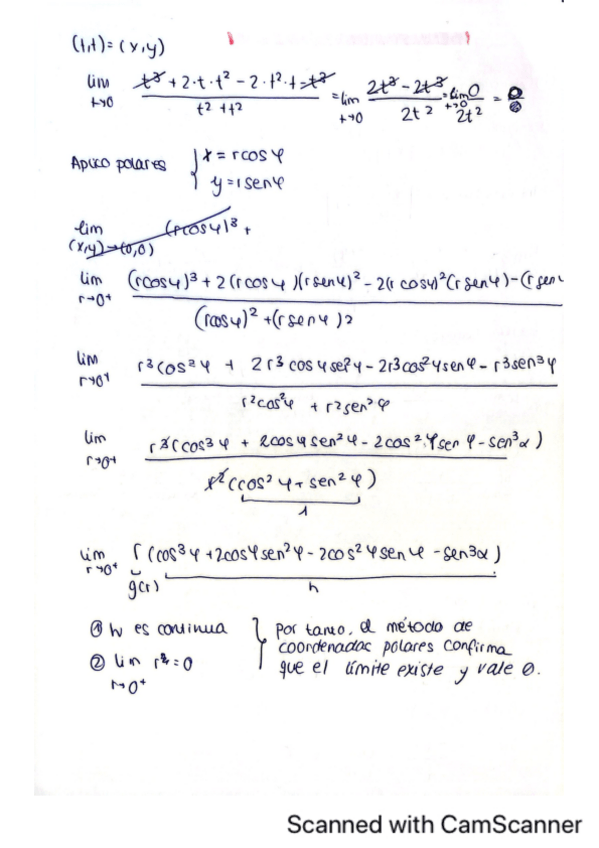 (t,t) = (x,y)
lim t→0 t³ + 2·t·t² - 2·t²·t - t³ / t² + t² = lim t→0 2t³ - 2t³ / 2t² = lim t→0 0 / 2t² = 0
Aplico polares { x = rcosφ
y = rsenφ
lim (x,y)→(0,0) (rcosφ)³ +
lim r→0⁺ (rcosφ)³ + 2(rcosφ)(rsenφ)² - 2(rcosφ)²(rsenφ) - (rsenφ / (rcosφ)² + (rsenφ)2
lim r→0⁺ r³cos³φ + 2r³cosφsen²φ - 2r3cos²φsenφ - r³sen³φ / r²cos²φ + r²sen²φ
lim r→0⁺ r³(cos³φ + 2cosφsen²φ - 2cos²φsenφ - sen³α) / r²(cos²φ + sen²φ)
1
lim r→0⁺ r (cos³φ + 2cosφsen²φ - 2cos²φsenφ - sen3α)
g(r) h
① h es continua } Por tanto, el método de
coordenadas polares confirma
② lim r→0⁺ r = 0 que el límite existe y vale 0.
Scanned with CamScanner